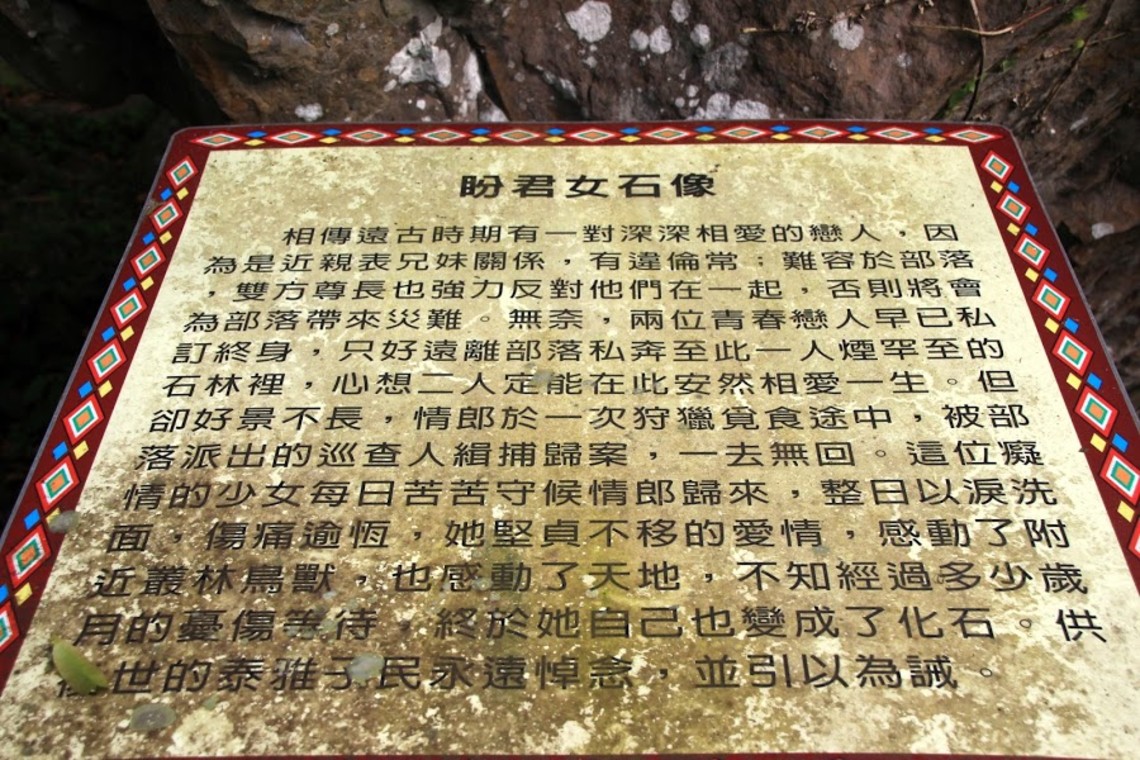 盼君女石像
相傳遠古時期有一對深深相愛的戀人，因
為是近親表兄妹關係，有違倫常；難容於部落
，雙方尊長也強力反對他們在一起，否則將會
為部落帶來災難。無奈，兩位青春戀人早已私
訂終身，只好遠離部落私奔至此一人煙罕至的
石林裡，心想二人定能在此安然相愛一生。但
卻好景不長，情郎於一次狩獵覓食途中，被部
落派出的巡查人緝捕歸案，一去無回。這位癡
情的少女每日苦苦守候情郎歸來，整日以淚洗
面，傷痛逾恆，她堅貞不移的愛情，感動了附
近叢林鳥獸，也感動了天地，不知經過多少歲
月的憂傷等待，終於她自己也變成了化石。供
世的泰雅子民永遠悼念，並引以為誡。